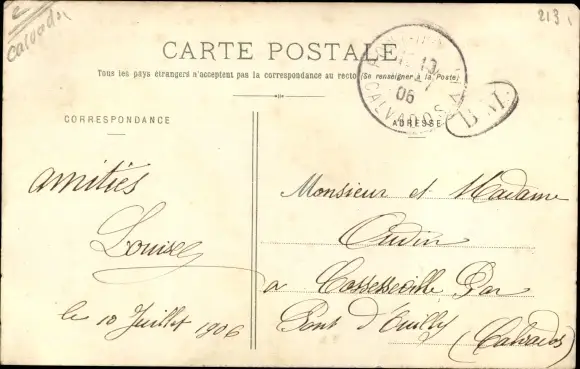 Calvados
213
CARTE POSTALE
Tous les pays étrangers n'acceptent pas la correspondance au recto (Se renseigner à la Poste)
10
06
CALVADOS
B.M.
CORRESPONDANCE
ADRESSE
amitiés
Louise
le 10 Juillet 1906
Monsieur et Madame
Oudin
a Cossesseville Par
Pont d'Ouilly (Calvados)